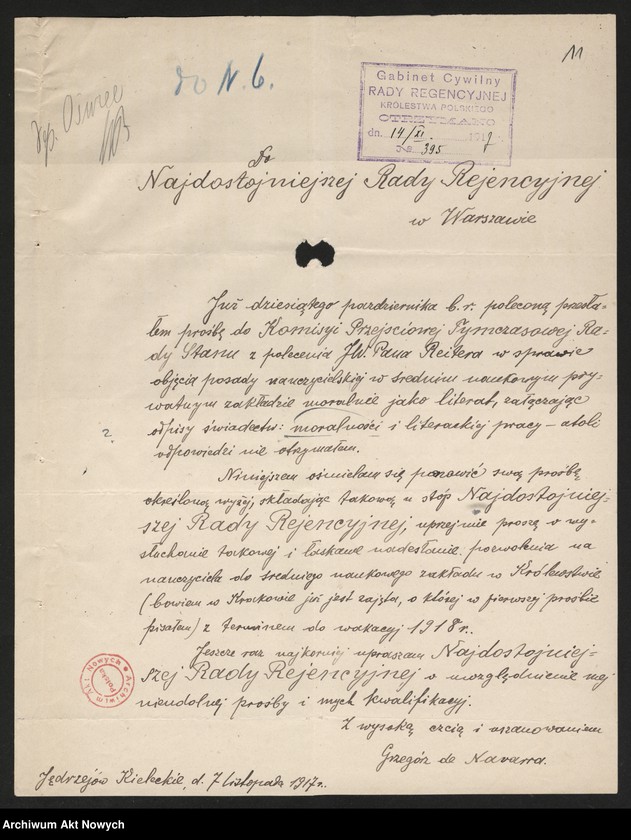 11
do N. 6.
Gabinet Cywilny
RADY REGENCYJNEJ
KRÓLESTWA POLSKIEGO
OTRZYMANO
dn. 14/XI. 1917
№ 395
Do
Najdostojniejszej Rady Rejencyjnej
w Warszawie
Już dziesiątego października b. r. poleconą przesła-
łem prośbę do Komisyi Przejściowej Tymczasowej Ra-
dy Stanu z polecenia JW. Pana Reitera w sprawie
objęcia posady nauczycielskiej w średnim naukowym pry-
watnym zakładzie moralnie jako literat, załączając
odpisy świadectw: moralności i literackiej pracy – atoli
odpowiedzi nie otrzymałem.
Niniejszem ośmielam się ponowić swą prośbę
określoną wyżej, składając takową u stóp Najdostojniej-
szej Rady Rejencyjnej, uprzejmie proszę o wy-
słuchanie takowej i łaskawe nadesłanie pozwolenia na
nauczyciela do średniego naukowego zakładu w Królestwie
(bowiem w Krakowie już jest zajęta, o której w pierwszej prośbie
pisałem) z terminem do wakacyj 1918 r.
Jeszcze raz najkorniej upraszam Najdostojniej-
szej Rady Rejencyjnej o uwzględnienie mej
nieudolnej prośby i mych kwalifikacyj.
Z wysoką czcią i uszanowaniem
Grzegórz de Navarra.
Jędrzejów Kieleckie, d. 7 listopada 1917 r.
Archiwum Akt Nowych
Polska
Archiwum Akt Nowych